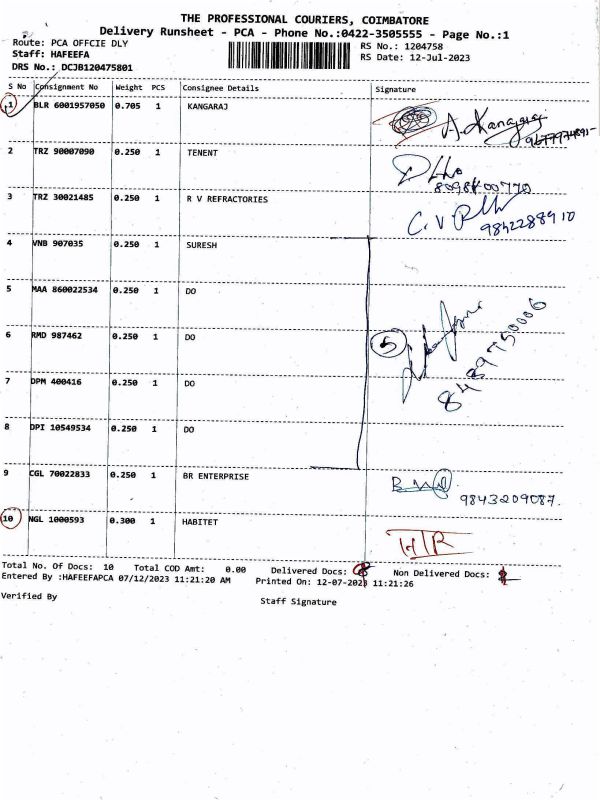 THE PROFESSIONAL COURIERS, COIMBATORE
Delivery Runsheet - PCA - Phone No.:0422-3505555 - Page No.:1
Route: PCA OFFCIE DLY
Staff: HAFEEFA
DRS No.: DCJB120475801
RS No.: 1204758
RS Date: 12-Jul-2023
S No Consignment No Weight PCS Consignee Details Signature
1 BLR 6001957050 0.705 1 KANGARAJ A. Kanagaraj
2 TRZ 90007090 0.250 1 TENENT
8098400770
3 TRZ 30021485 0.250 1 R V REFRACTORIES C. V
9842288910
4 VNB 907035 0.250 1 SURESH
5 MAA 860022534 0.250 1 DO
6 RMD 987462 0.250 1 DO 5
8489750006
7 DPM 400416 0.250 1 DO
8 DPI 10549534 0.250 1 DO
9 CGL 70022833 0.250 1 BR ENTERPRISE
9843209087.
10 NGL 1000593 0.300 1 HABITET
H/R
Total No. Of Docs: 10 Total COD Amt: 0.00 Delivered Docs: Non Delivered Docs:
Entered By :HAFEEFAPCA 07/12/2023 11:21:20 AM Printed On: 12-07-2023 11:21:26
Verified By Staff Signature